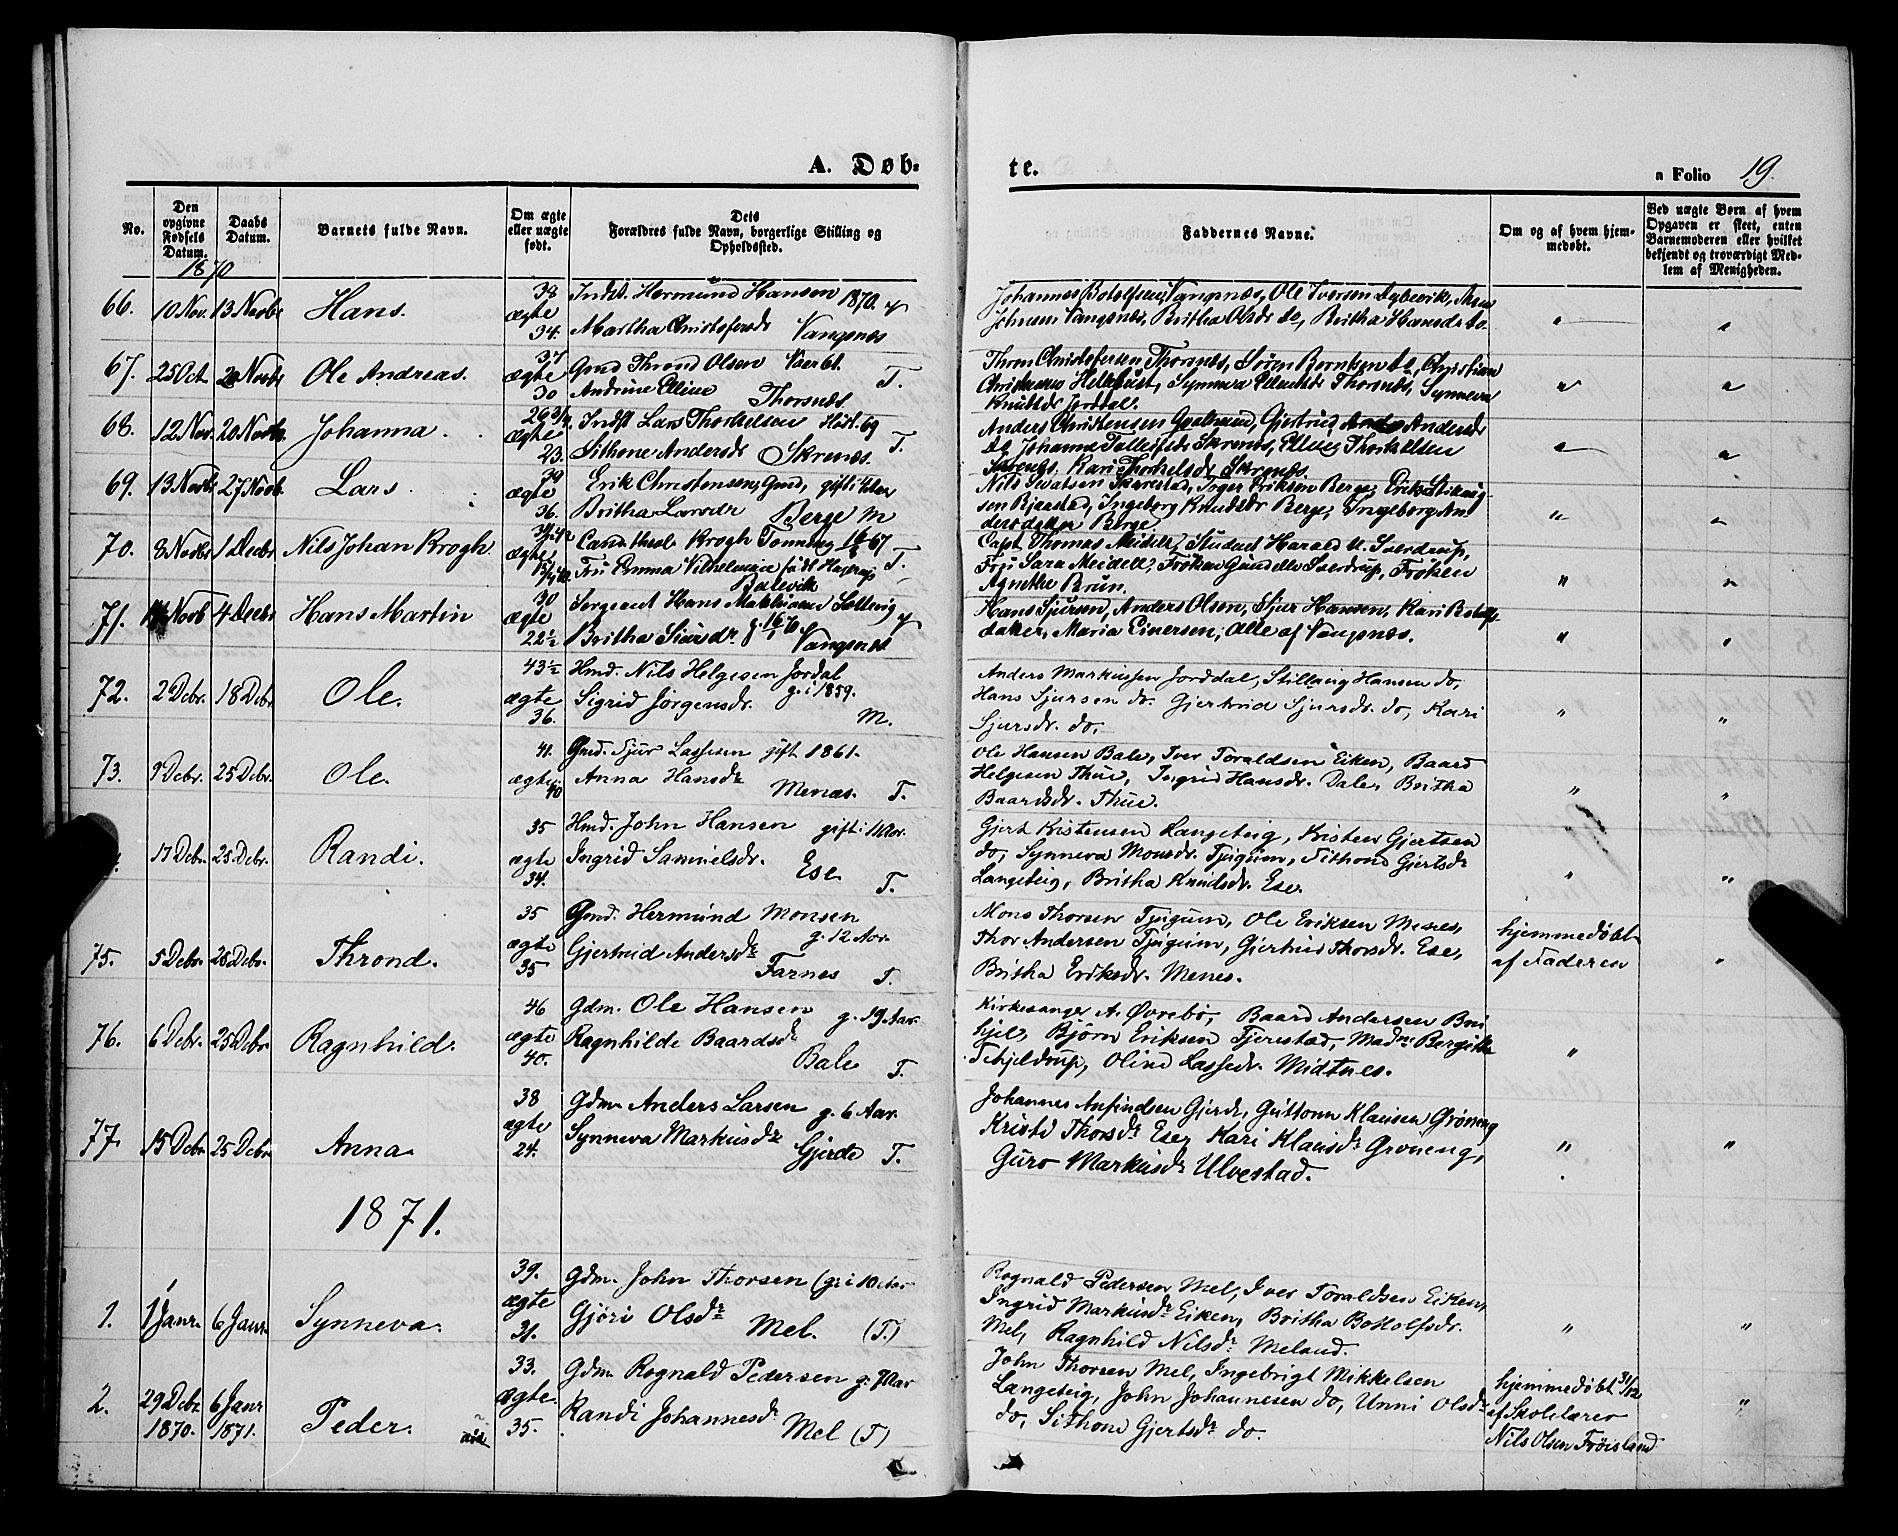 A. Døb-
te.
n Folio 19.
No.
Den opgivne Fødsels Datum.
Daabs Datum.
Barnets fulde Navn.
Om ægte eller uægte født.
Dets Forældres fulde Navn, borgerlige Stilling og Opholdssted.
Faddernes Navne.
Om og af hvem hjemmedøbt.
Ved uægte Børn af hvem Opgaven er skeet, enten Barnemoderen eller hvilket bekjendt og troværdigt Medlem af Menigheden.
1870
66. 10 Nov. 13 Novbr Hans.
38 ægte 34.
Indst. Hermund Hansen 1870.
Martha Christofersdr Vangsnes
Johannes Botolfsen Vangsnes, Ole Iversen
Johnsen Vangsnes, Britha Olsdr do, Britha Hansdr do.
67. 25 Oct. 20 Novbr Ole Andreas.
37 ægte 30
Gmd Thrond Olsen
Andrine Elline Thorsnes T.
Christofersen Thorsnes, Søren do, Christian
Synneva Thorsnes, Synneva
Knutsdr Jorddal.
68. 12 Nov. 20 Novbr. Johanna.
ægte 23.
Indst Lars Thorkelsen 69
Sithone Andersdr Skrenes. T.
Anders Christensen Gjertrud Andersdr
do, Johanna Skrenes, Thorkelsen
Skrenes, Kari Thorkelsdr Skrenes.
69. 13 Novbr 27 Novb. Lars.
39 ægte 36.
Erik Christensen, Gmd, gift i
Britha Larsdr Berge M
Nils Berge, Erik
Ingeborg Knudsdr Berge, Ingeborg An
dersdatter Berge
70. 8 Novbr 1 Decbr Nils Johan Krogh.
ægte
Cand. theol Krogh Tonning 67 T.
Fru Emma Vilhelmine født
Balevik
Capt Thomas Meidell, Student Harald U. Sverdrup,
Fru Sara Meidell, Frøken Sverdrup, Frøken
Agnethe Brun.
71. Novb 4 Decbr Hans Martin
30 ægte 22½
Sergeant Hans
Britha Siursdr Vangsnes
Hans Sjursen, Anders Olsen, Sjur Hansen, Kari Botolfs-
datter, Maria Einersen; Alle af Vangsnes.
72. 2 Debr. 18 Debr Ole.
43½ ægte 36.
Hmd. Nils Helgesen Jordal
g. i 1859.
Sigrid Jörgensdr. M.
Anders Markussen Jorddal, Stillaug Hansen do,
Hans Sjursen do. Gjertrud Sjursdr. do, Kari
Sjursdr. do,
73. 9 Debr. 25 Debr. Ole.
41. ægte 40
Gmd. Sjur Lassesen gift 1861.
Anna Hansdr Menæs. T.
Ole Hansen Bale, Iver Toraldsen Eiken, Baard
Helgesen Thue, Ingrid Hansdr. Dale, Britha
Baardsdr. Thue.
17 Debr. 25 Debr. Randi.
35 ægte 34.
Hmd. John Hansen gift i 11 Aar.
Ingrid Samuelsdr. Ese T.
Gjert Kristensen Langeteig, Kristen Gjertsen
do, Synneva Monsdr. Tjugum, Sithone Gjertsdr
Langeteig, Britha Knudsdr. Ese.
75. 5 Debr. 26 Debr. Thrond.
35 ægte 35
Gmd. Hermund Monsen
g. 12 Aar.
Gjertrud Andersdr Farnes T.
Mons Thorsen Tjugum, Ole Eriksen Menes,
Thor Andersen Tjugum, Gjertrud Thorsdr. Ese,
Britha Eriksdr. Menes.
hjemmedøbt
af Faderen
76. 6 Debr. 25 Debr. Ragnhild.
46 ægte 40.
Gdm. Ole Hansen g. 19 Aar.
Ragnhilde Baardsdr
Bale T.
Kirkesanger A. Øvrebø, Baard Andersen Bri
hjel, Bjørn Eriksen Tjerestad, Madme Bergitte
Schjeldrup, Oline Lassedr. Midtnes.
77. 15 Debr. 25 Debr. Anna.
38 ægte 24.
Gdm. Anders Larsen g. 6 Aar.
Synneva Markusdr Gjerde T.
Johannes Anfindsen Gjerde, Guttorm Klausen Grøneng
Kristi Thorsdr Ese, Kari Klausdr Grøneng,
Guro Markusdr Ulvestad.
1871.
1. 1 Janr. 6 Janr. Synneva.
39. ægte 31.
Gdm. John Thorsen (g. i 10 Aar
Gjøri Olsdr Mel. (T.)
Rognald Pedersen Mel, Iver Toraldsen Eiken,
Ingrid Markusdr Eiken, Britha Botolfsdr.
Mel, Ragnhild Nilsdr Meland.
2. 29 Debr 1870. 6 Janr 1871. Peder.
33. ægte. 35.
Gdm. Rognald Pedersen g. 7 Aar
Randi Johannesdr Mel (T)
John Thorsen Mel, Ingebrigt Mikkelsen
Langeteig, John Johannesen do, Unni Olsdr
do, Sithone Gjertsdr do.
hjemmedøbt 31/12
af Skolelærer
Nils Olsen Frøisland